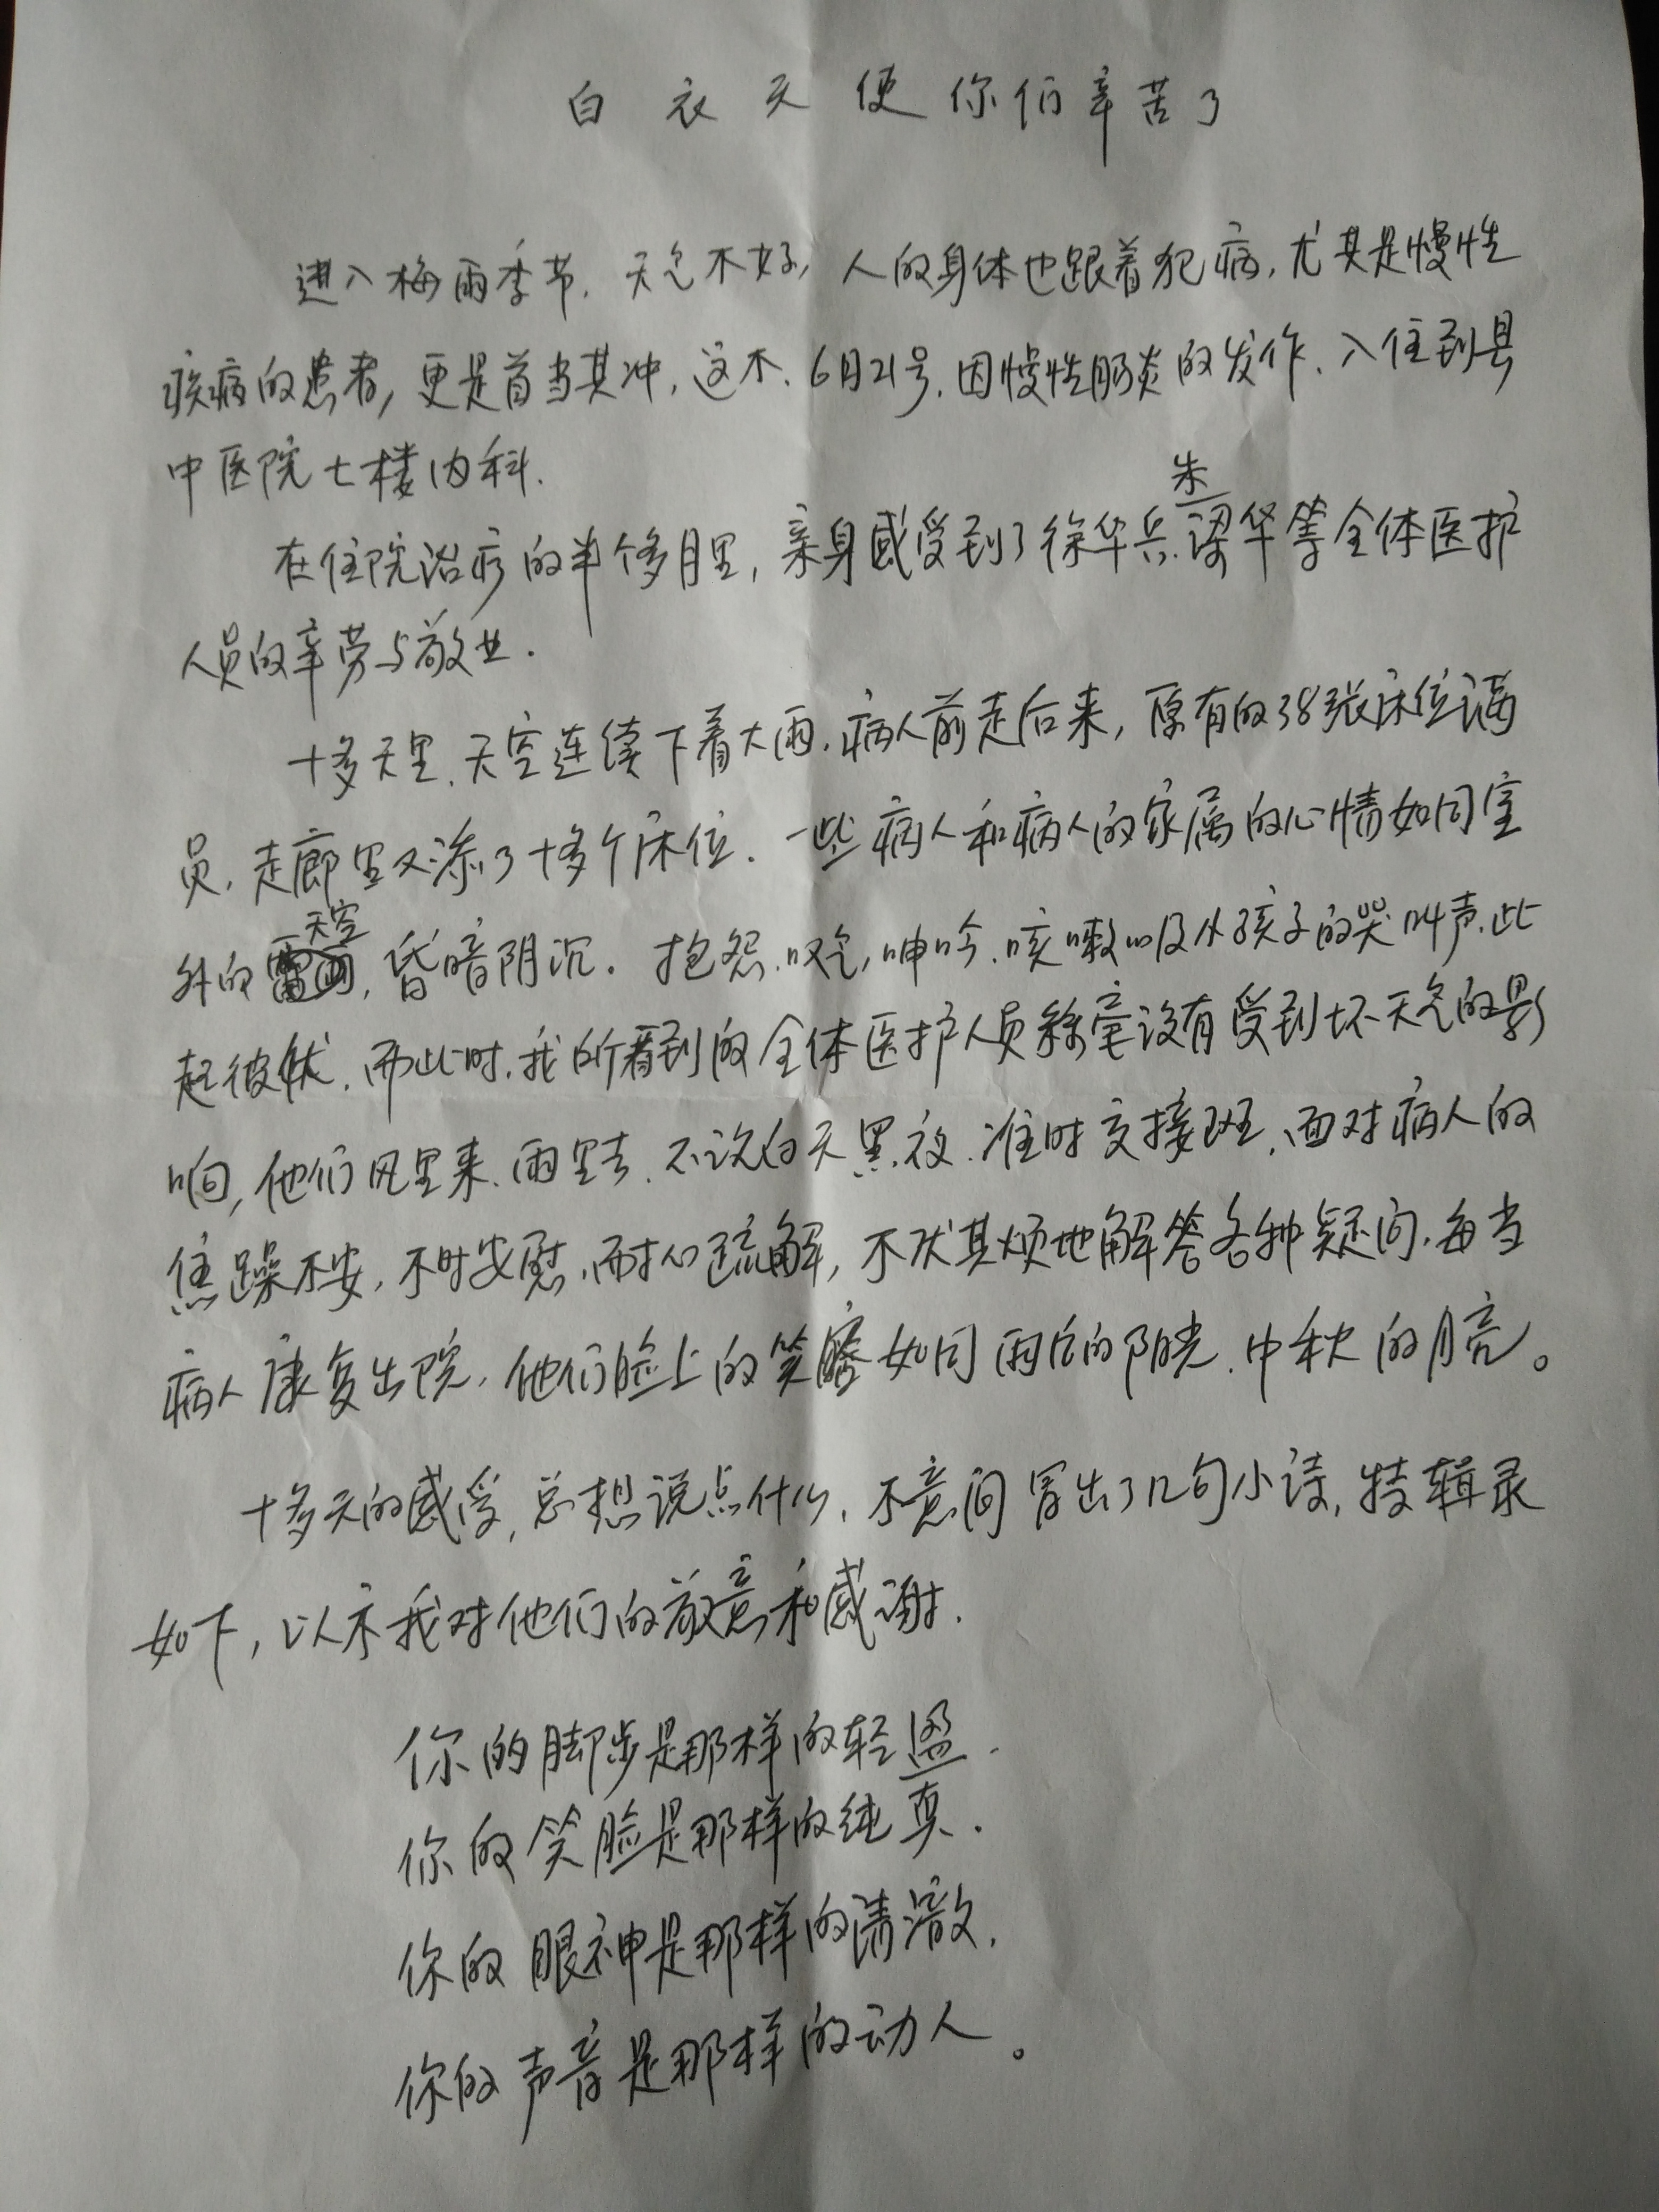 白衣天使你们辛苦了
进入梅雨季节.天气不好,人的身体也跟着犯病,尤其是慢性
疾病的患者,更是首当其冲,这不、6月21号.因慢性肠炎的发作、入住到县
中医院七楼内科.
朱
在住院治疗的半个多月里,亲身感受到了徐华兵、梁华等全体医护
人员的辛劳与敬业.
十多天里.天空连续下着大雨.病人前走后来,原有的38张床位满
员,走廊里又添了十多个床位.一些病人和病人的家属的心情如同室
天空
外的,昏暗阴沉。抱怨.叹气,呻吟.咳嗽以及小孩子的哭叫声.此
起彼伏.而此时.我所看到的全体医护人员丝毫没有受到坏天气的影
响,他们风里来.雨里去.不论白天黑夜.准时交接班,面对病人的
焦躁不安,不时安慰,耐心疏解,不厌其烦地解答各种疑问.每当
病人康复出院,他们脸上的笑容如同雨后的阳光.中秋的月亮。
十多天的感受,总想说点什么,不意间冒出了几句小诗,特辑录
如下,以示我对他们的敬意和感谢.
你的脚步是那样的轻盈.
你的笑脸是那样的纯真.
你的眼神是那样的清澈.
你的声音是那样的动人。